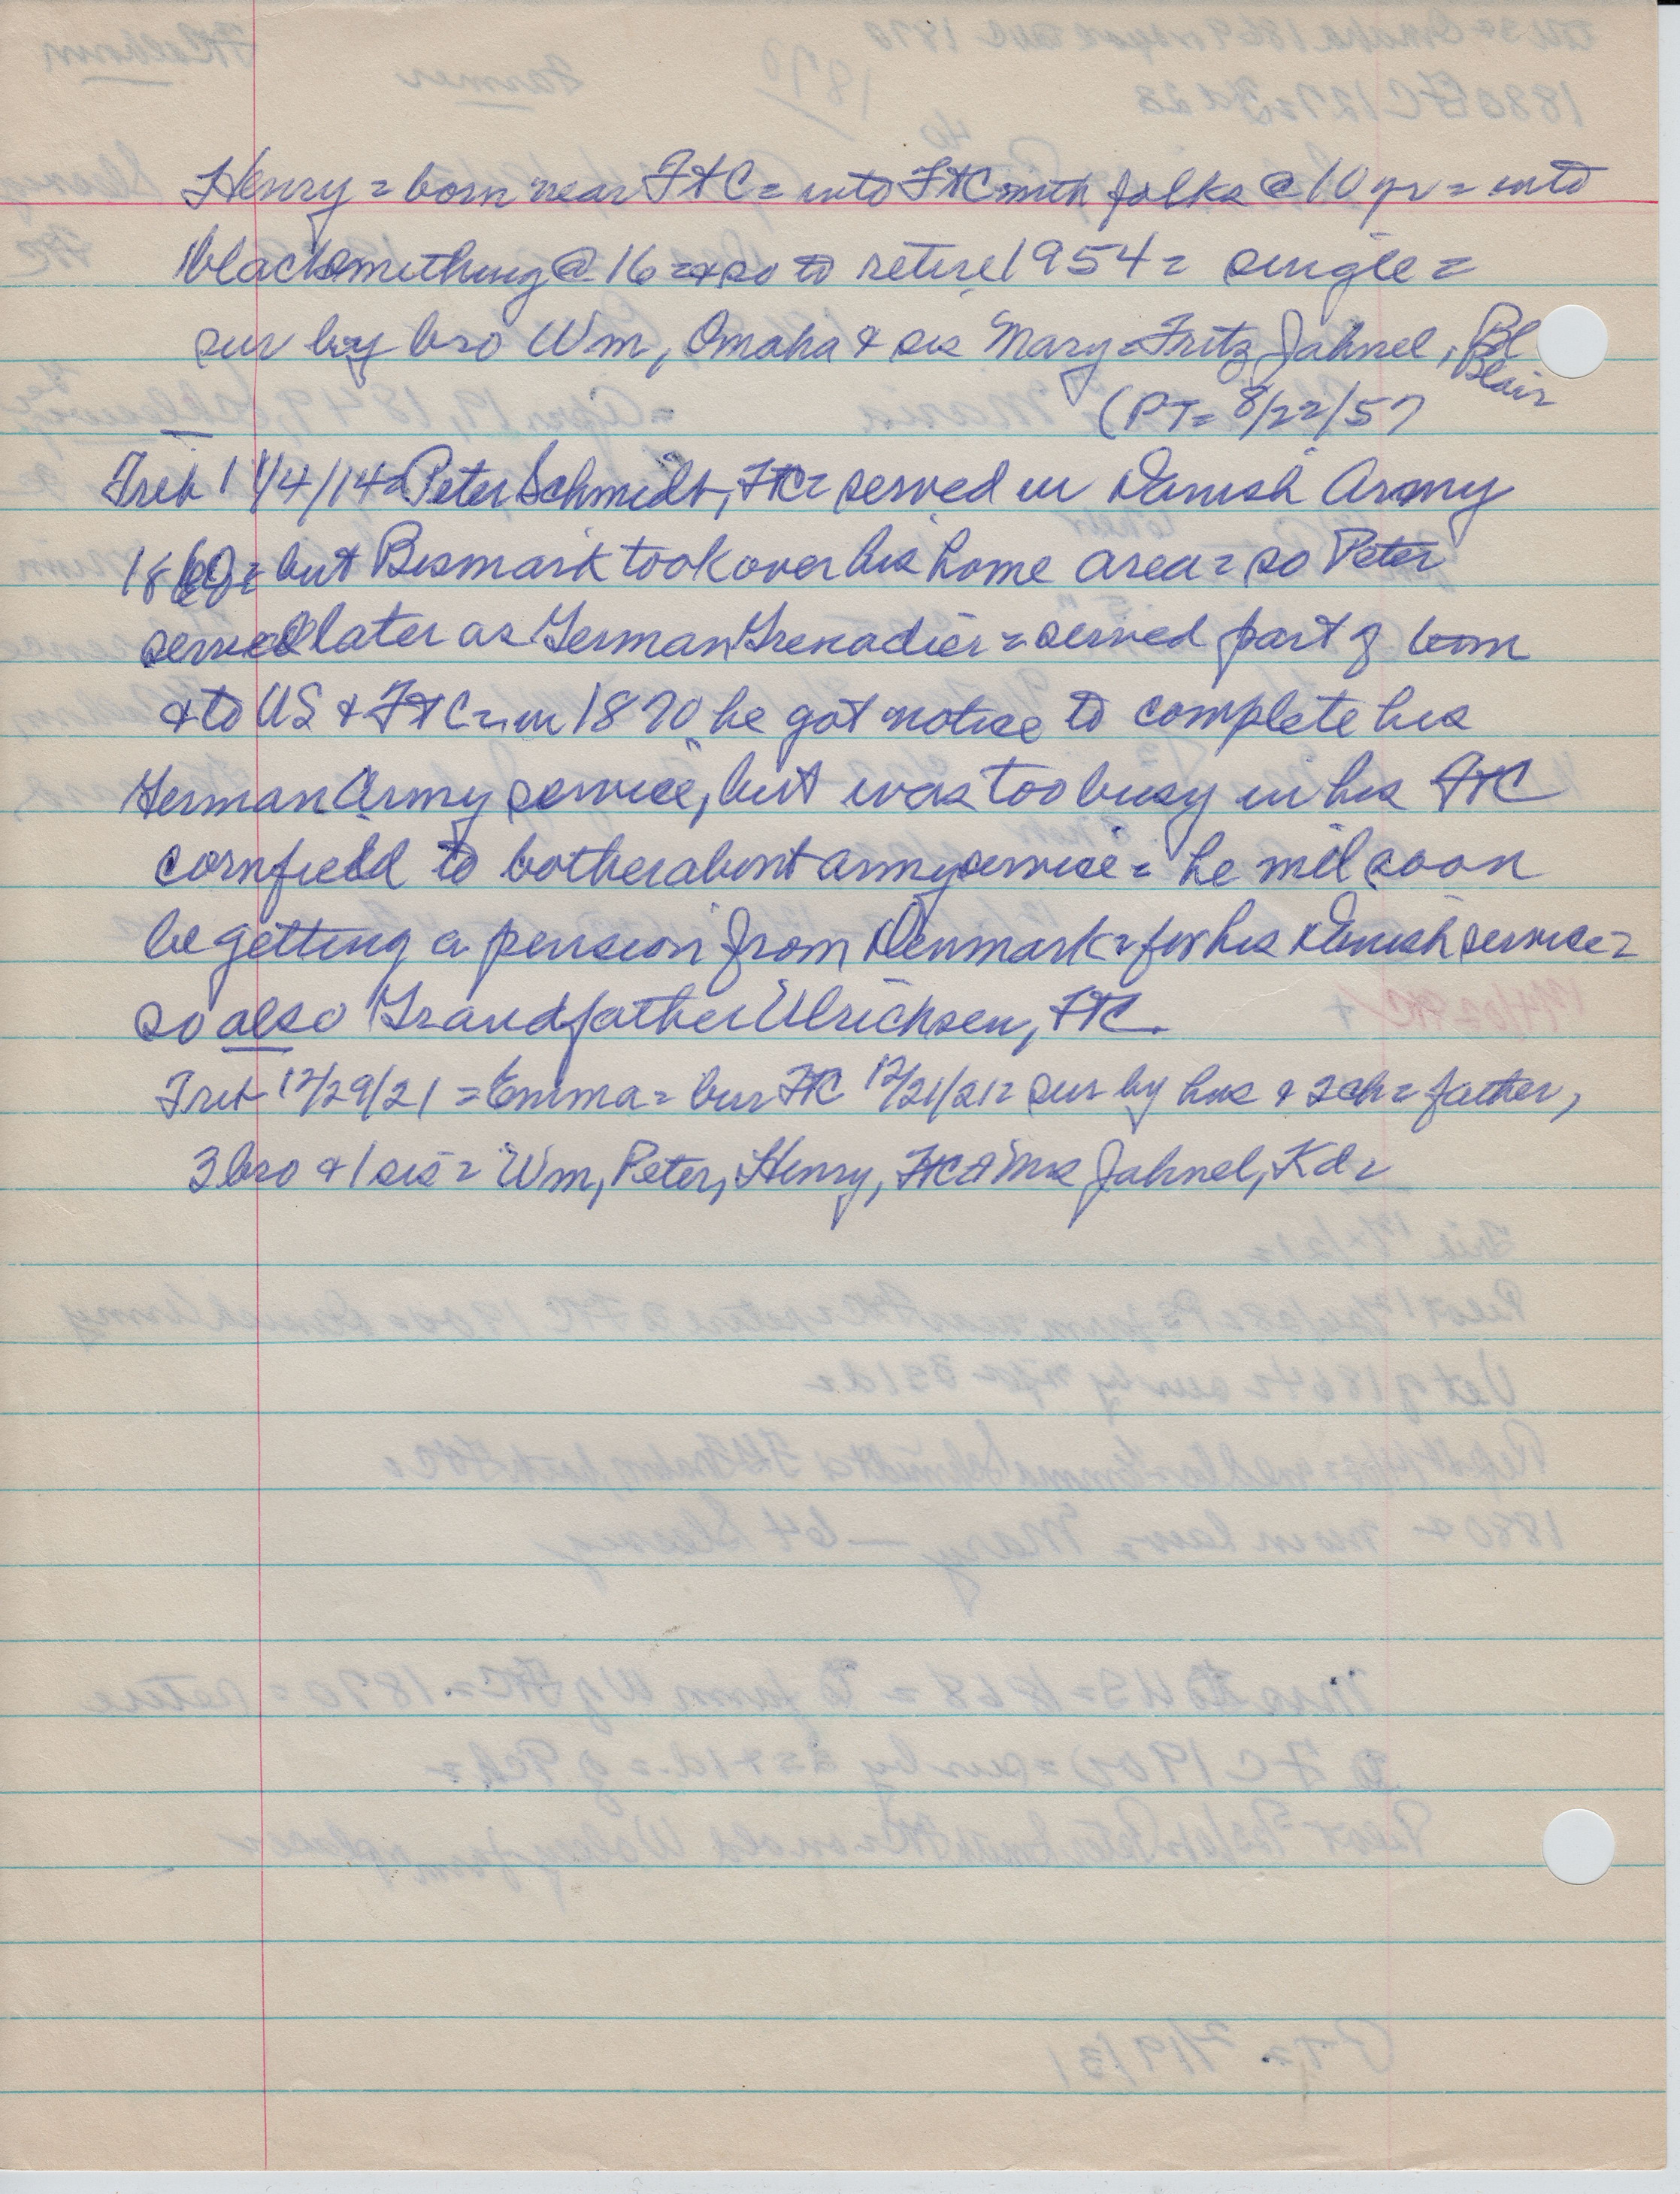 Henry = born near FtC = into FtC with folks @ 10 yr = into
blacksmithing @ 16 = & so to retire 1954 = single =
sur by bro Wm, Omaha & sis Mary = Fritz Jahnel, Bl
Blair
(PT = 8/22/57
Trib 1/14/14 = Peter Schmidt, FtC = served in Danish Army
1860 = but Bismark took over his home area = so Peter
served later as German Grenadier = served part of term
& to US & FtC = in 1870 he got notice to complete his
German Army service, but was too busy in his FtC
cornfield to bother about army service = he will soon
be getting a pension from Denmark = for his Danish service =
so also Grandfather Ulrichsen, FtC.
Trib 12/29/21 = Emma = bur FtC 12/21/21 = sur by hus & 2 ch = father,
3 bro & 1 sis = Wm, Peter, Henry, FtC & Mrs Jahnel, Kd =